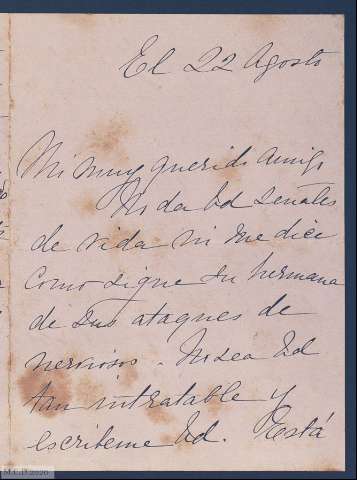 El 22 Agosto
Mi muy querido amigo
No da Vd señales
de vida ni me dice
como sigue su hermana
de sus ataques de
nerviosos. No sea Vd
tan intratable y
escribeme Vd. Está